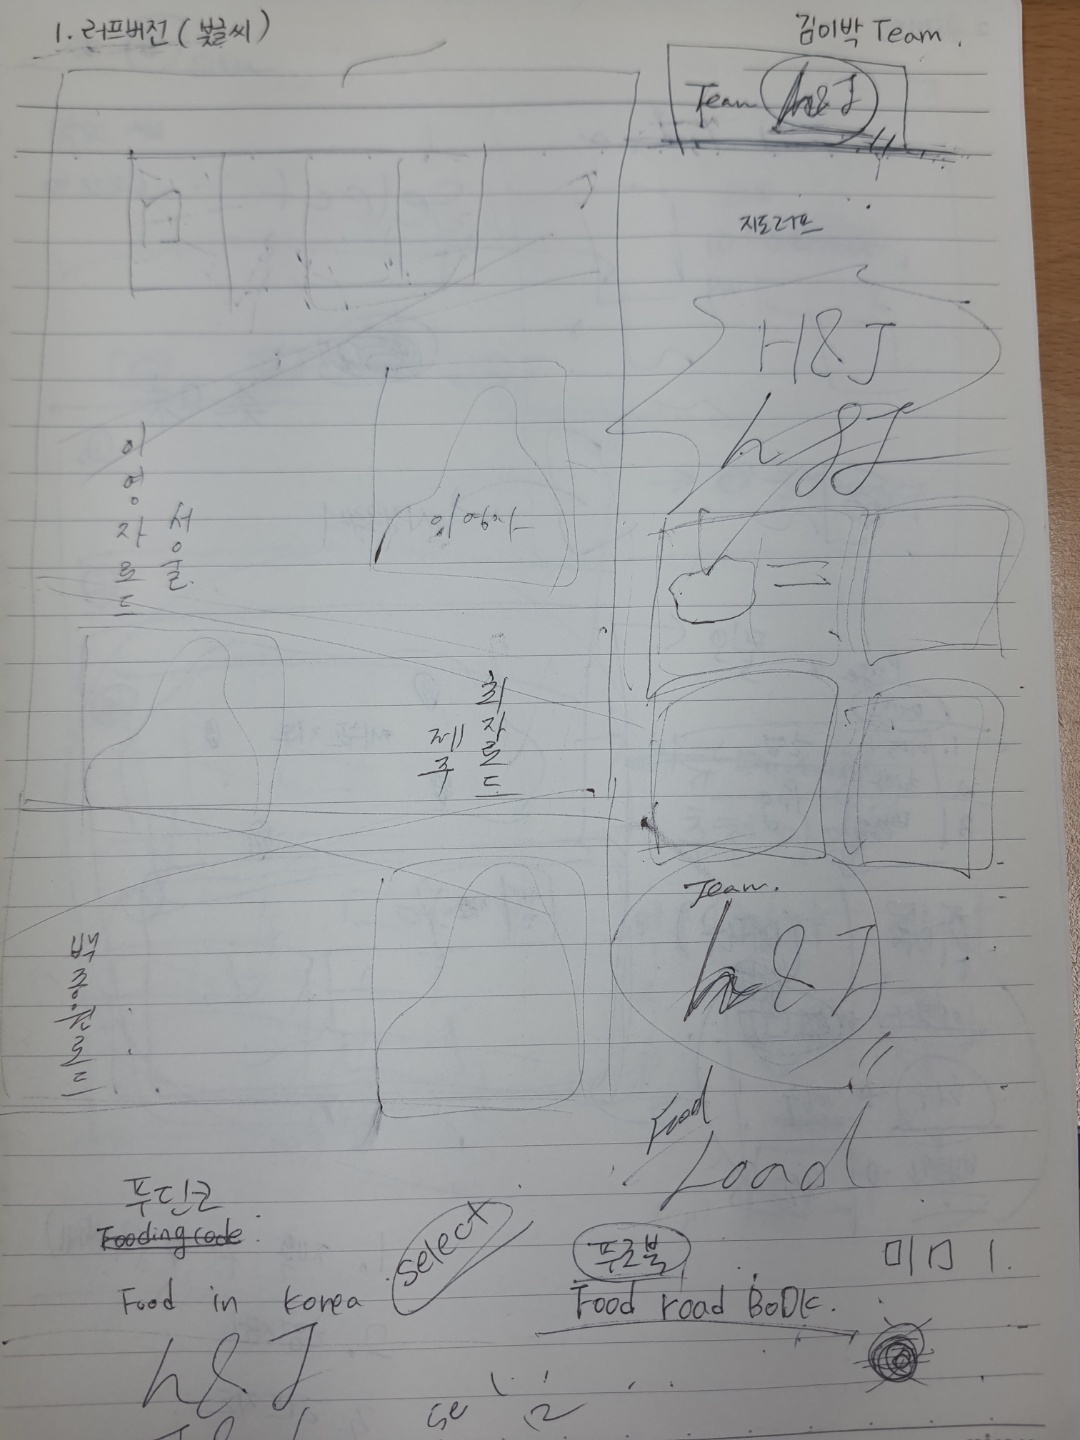 1. 러프버전 ( 붓글씨 )
김이박 Team.
Team h&J
지도러프
H&J
h&J
이영자로드
서울
이영자
최자로드
제주
백종원로드
Team.
h&J
Food
Load
푸딘코
Fooding code
Food in Korea
select
푸로북
Food road BoOK.
h&J